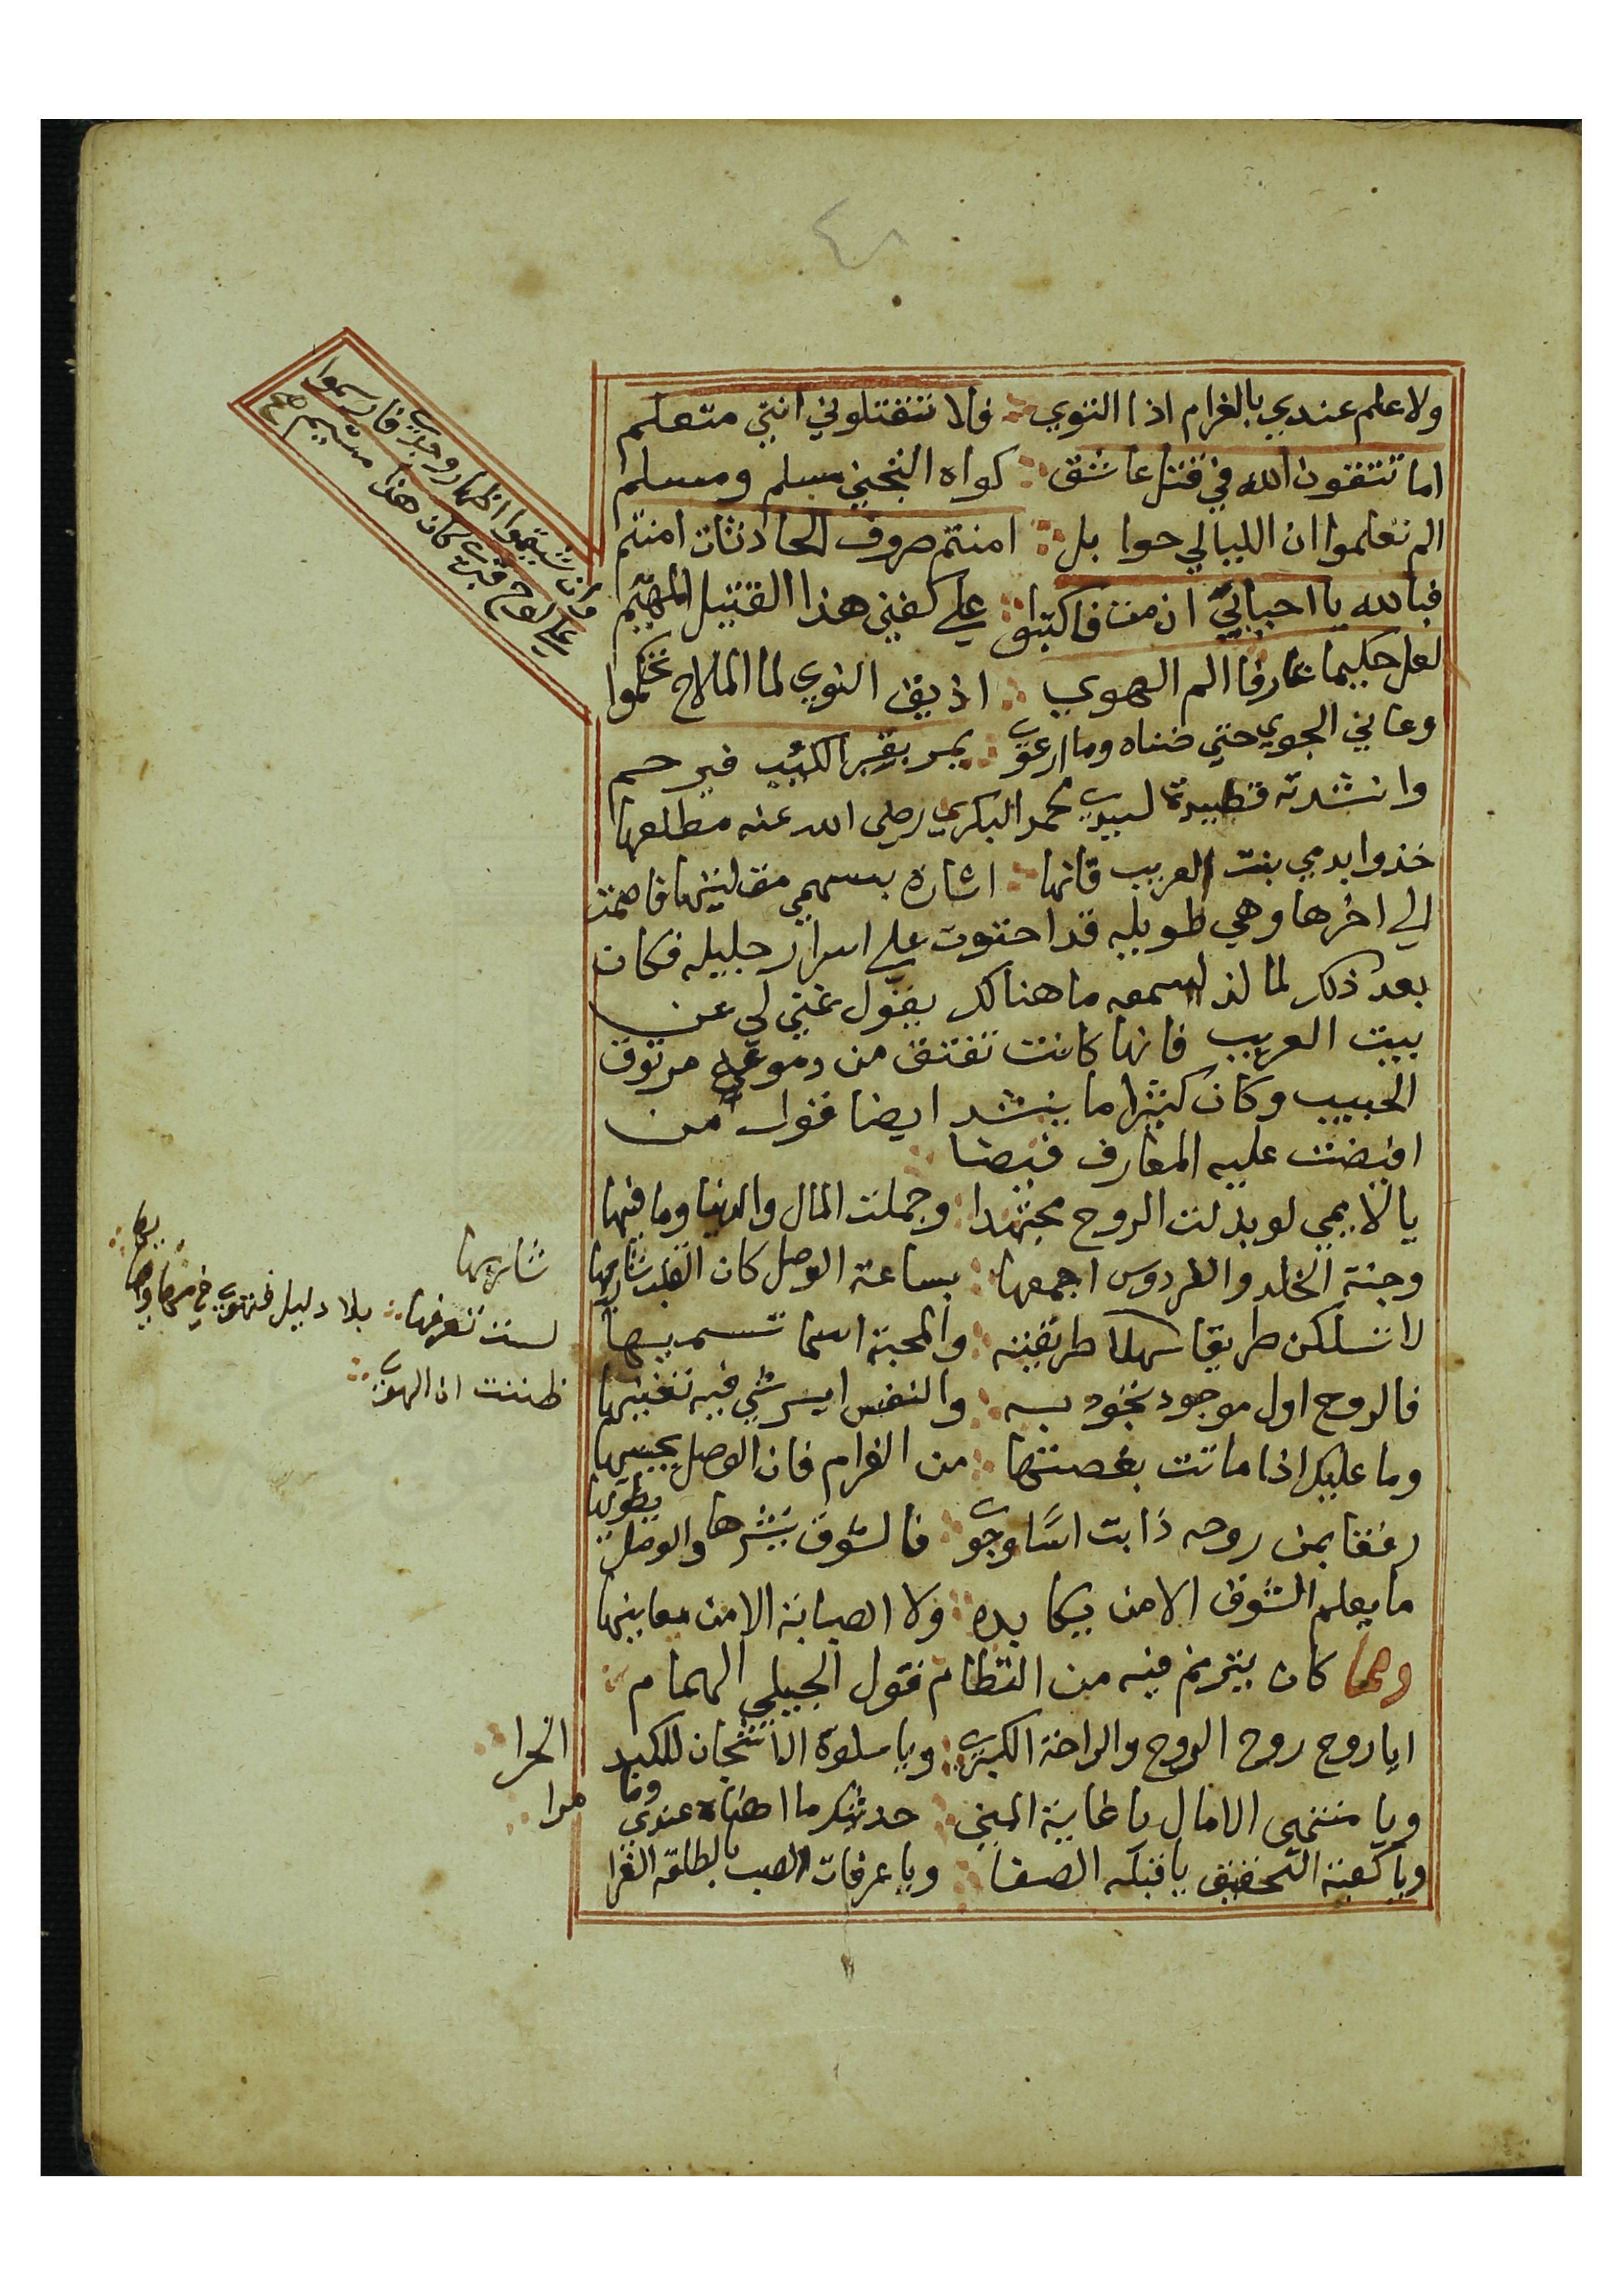 ولا علم عندي بالغرام اذا النوي ∴ فلا تقتلوني انني متعلم
اما تتقون الله في قتل عاشق ∴ كواه التجني مسلم ومسلم
الم تعلموا ان الليالي حوا بل ∴ امنتم صروف الحادثات امنتم
فبالله يا احبابي ان مت فاكتبوا ∴ علي كفني هذا القتيل المهيم
لعل حكيما عارفا الم الهوي ∴ اذيق النوي لما الملاح تحكموا
وعاني الجوي حتي ضناه وما ارعوي ∴ يمر بقبر الكئيب فيرحم
وانشدته قصيدة لسيدي محمد البكري رضى الله عنه مطلعها
خذوا بدمي بنت العريب فانها ∴ اشارة بسهمي مقلتيها فاصمت
الي اخرها وهي طويله قد احتوت علي اسرار جليله فكان
بعد ذلك لما لذ لسمعه ما هنالك يقول غني لي عن
بيت العريب فانها كانت تفتق من دموعي مرتوق
الحبيب وكان كثيرا ما ينشد ايضا قول من
افيضت عليه المعارف فيضا
يا لايمي لو بذلت الروح مجتهدا ∴ وجملت المال والدنيا وما فيها
وجنة الخلد والفردوس اجمعها ∴ بساعة الوصل كان القلب شاريها
لا تسلكن طريقا سهلا طريقته ∴ والمحبة اسما تسمي بها
فالروح اول موجود تجود به ∴ والنفس ايسر شي فيه تفنيها
وما عليك اذا ماتت بغصتها ∴ من الغرام فان الوصل يحييها
رفقا بمن روحه ذابت اسًا وجوي ∴ فالشوق ينشرها والوصل يطويها
ما يعلم الشوق الا من يكابده ∴ ولا الصبابة الا من يعانيها
ومما كان يترنم فيه من النظام قول الجيلي الهمام ∴
ايا روح روح الروح والراحة الكبري ∴ ويا سلوة الاشجان للكبد
الحرا
ويا منتهى الامال يا غاية المني ∴ حديثك ما احلاه عندي وما
مرا
ويا كعبة التحقيق يا قبلة الصفا ∴ ويا عرفات الصب يا لطلعه الغرا
علي لوح قبري كان هذا متيم
شاريها
لست تعرفها ∴ بلا دليل فتهوي في
ظننت ان الهوي